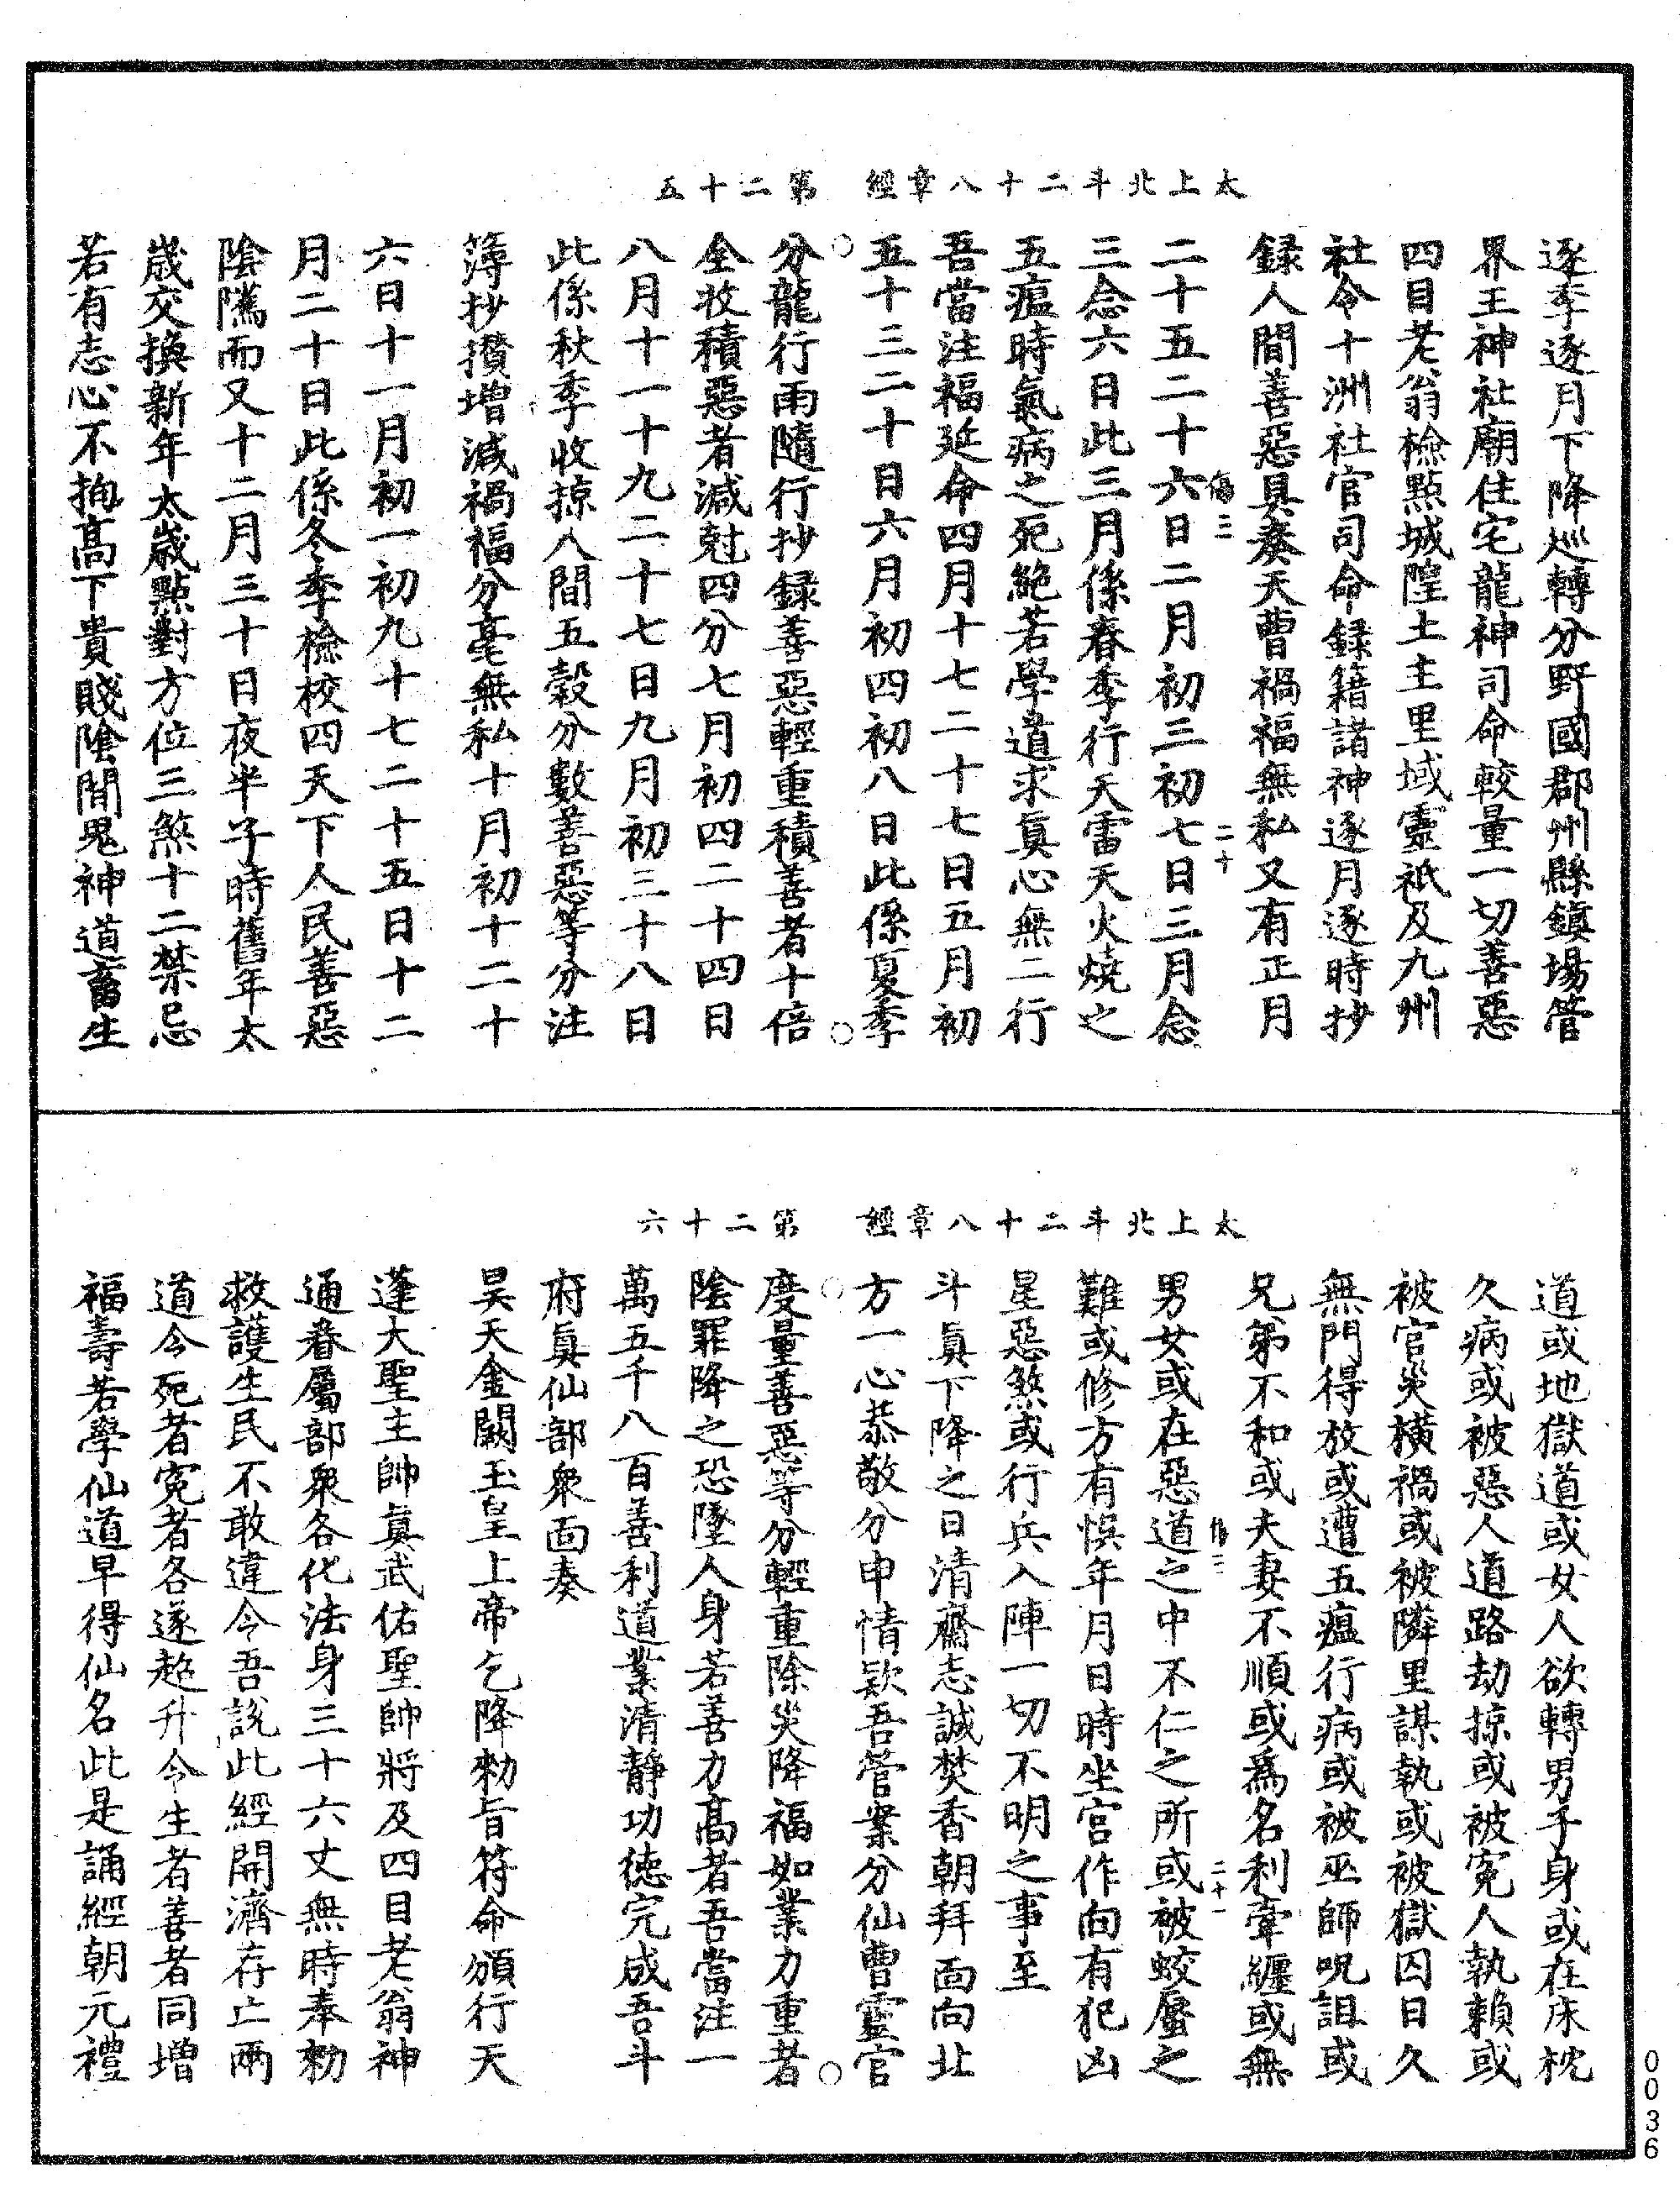 太上北斗二十八章經　第二十五
逐季逐月下降巡轉分野國郡州縣鎮場管
界王神社廟住宅龍神司命較量一切善惡
四目老翁檢點城隍土主里域靈祇及九州
社令十洲社官司命録籍諸神逐月逐時抄
録人間善惡具奏天曹禍福無私又有正月
傷三　二十
二十五二十六日二月初三初七日三月念
三念六日此三月係春季行天雷天火燒之
五瘟時氣病之死絕若學道求眞心無二行
吾當注福延命四月十七二十七日五月初
五十三二十日六月初四初八日此係夏季
分龍行雨隨行抄録善惡輕重積善者十倍
全收積惡者減尅四分七月初四二十四日
八月十一十九二十七日九月初三十八日
此係秋季收掠人間五穀分數善惡等分注
簿抄攢增減禍福分毫無私十月初十二十
六日十一月初一初九十七二十五日十二
月二十日此係冬季檢校四天下人民善惡
陰騭而又十二月三十日夜半子時舊年太
歲交換新年太歲點對方位三煞十二禁忌
若有志心不拘高下貴賤陰間鬼神道畜生
太上北斗二十八章經　第二十六
道或地獄道或女人欲轉男子身或在床枕
久病或被惡人道路劫掠或被寃人執賴或
被官災橫禍或被隣里謀執或被獄囚日久
無門得放或遭五瘟行病或被巫師呪詛或
兄弟不和或夫妻不順或爲名利牽纏或無
傷三　二十一
男女或在惡道之中不仁之所或被蛟蜃之
難或修方有悞年月日時坐宮作向有犯凶
星惡煞或行兵入陣一切不明之事至
斗眞下降之日清齋志誠焚香朝拜面向北
方一心恭敬分申情欵吾管案分仙曹靈官
度量善惡等分輕重除災降福如業力重者
陰罪降之恐墜人身若善力高者吾當注一
萬五千八百善利道業清靜功德完成吾斗
府眞仙部衆面奏
昊天金闕玉皇上帝乞降勑旨符命頒行天
蓬大聖主帥眞武佑聖帥將及四目老翁神
通眷屬部衆各化法身三十六丈無時奉勑
救護生民不敢違今吾說此經開濟存亡兩
道令死者寃者各遂超升令生者善者同增
福壽若學仙道早得仙名此是誦經朝元禮
0036